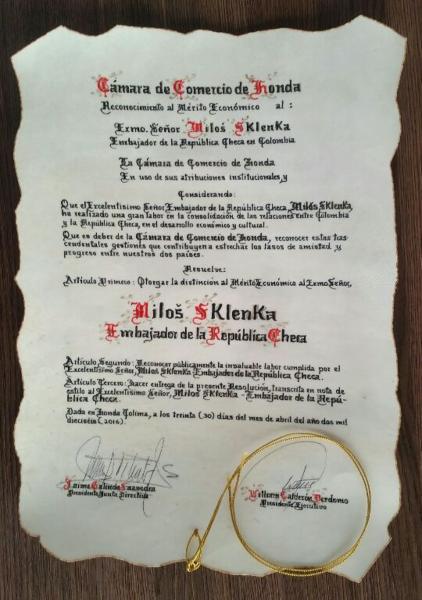 Cámara de Comercio de Honda
Reconocimiento al Mérito Económico al :
Exmo. Señor Miloš Sklenka
Embajador de la República Checa en Colombia
La Cámara de Comercio de Honda
En uso de sus atribuciones institucionales, y
Considerando:
Que el Excelentísimo Señor Embajador de la República Checa, Miloš Sklenka,
ha realizado una gran labor en la consolidación de las relaciones entre Colombia
y la República Checa, en el desarrollo económico y cultural.
Que es deber de la Cámara de Comercio de Honda, reconocer estas tras
cendentales gestiones que contribuyen a estrechar los lasos de amistad y
progreso entre nuestros dos países.
Resuelve:
Artículo Primero : Otorgar la distinción al Mérito Económico al Exmo Señor,
Miloš Sklenka
Embajador de la República Checa
Artículo Segundo: Reconocer públicamente la invaluable labor cumplida por el
Excelentísimo Señor, Miloš Sklenka-Embajador de la República Checa.
Artículo Tercero: hacer entrega de la presente Resolución, transcrita en nota de
estilo al Excelentísimo Señor, Miloš Sklenka - Embajador de la Repú-
blica Checa.
Dada en Honda Tolima, a los treinta (30) días del mes de abril del año dos mil
dieciséis (2016).
Jaime Saavedra
Presidente Junta Directiva
William Calderón Perdomo
Presidente Ejecutivo